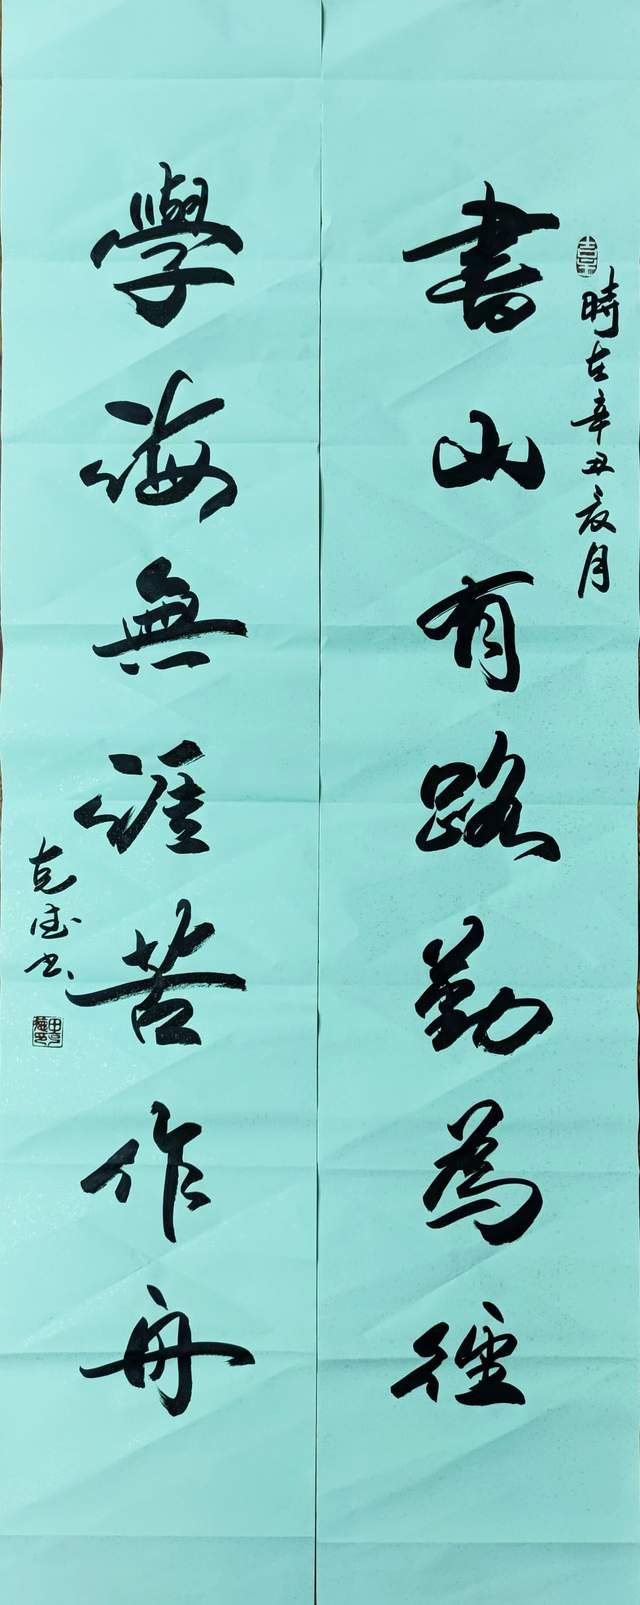 時在辛丑辰月
書山有路勤為徑
學海無涯苦作舟
克成书